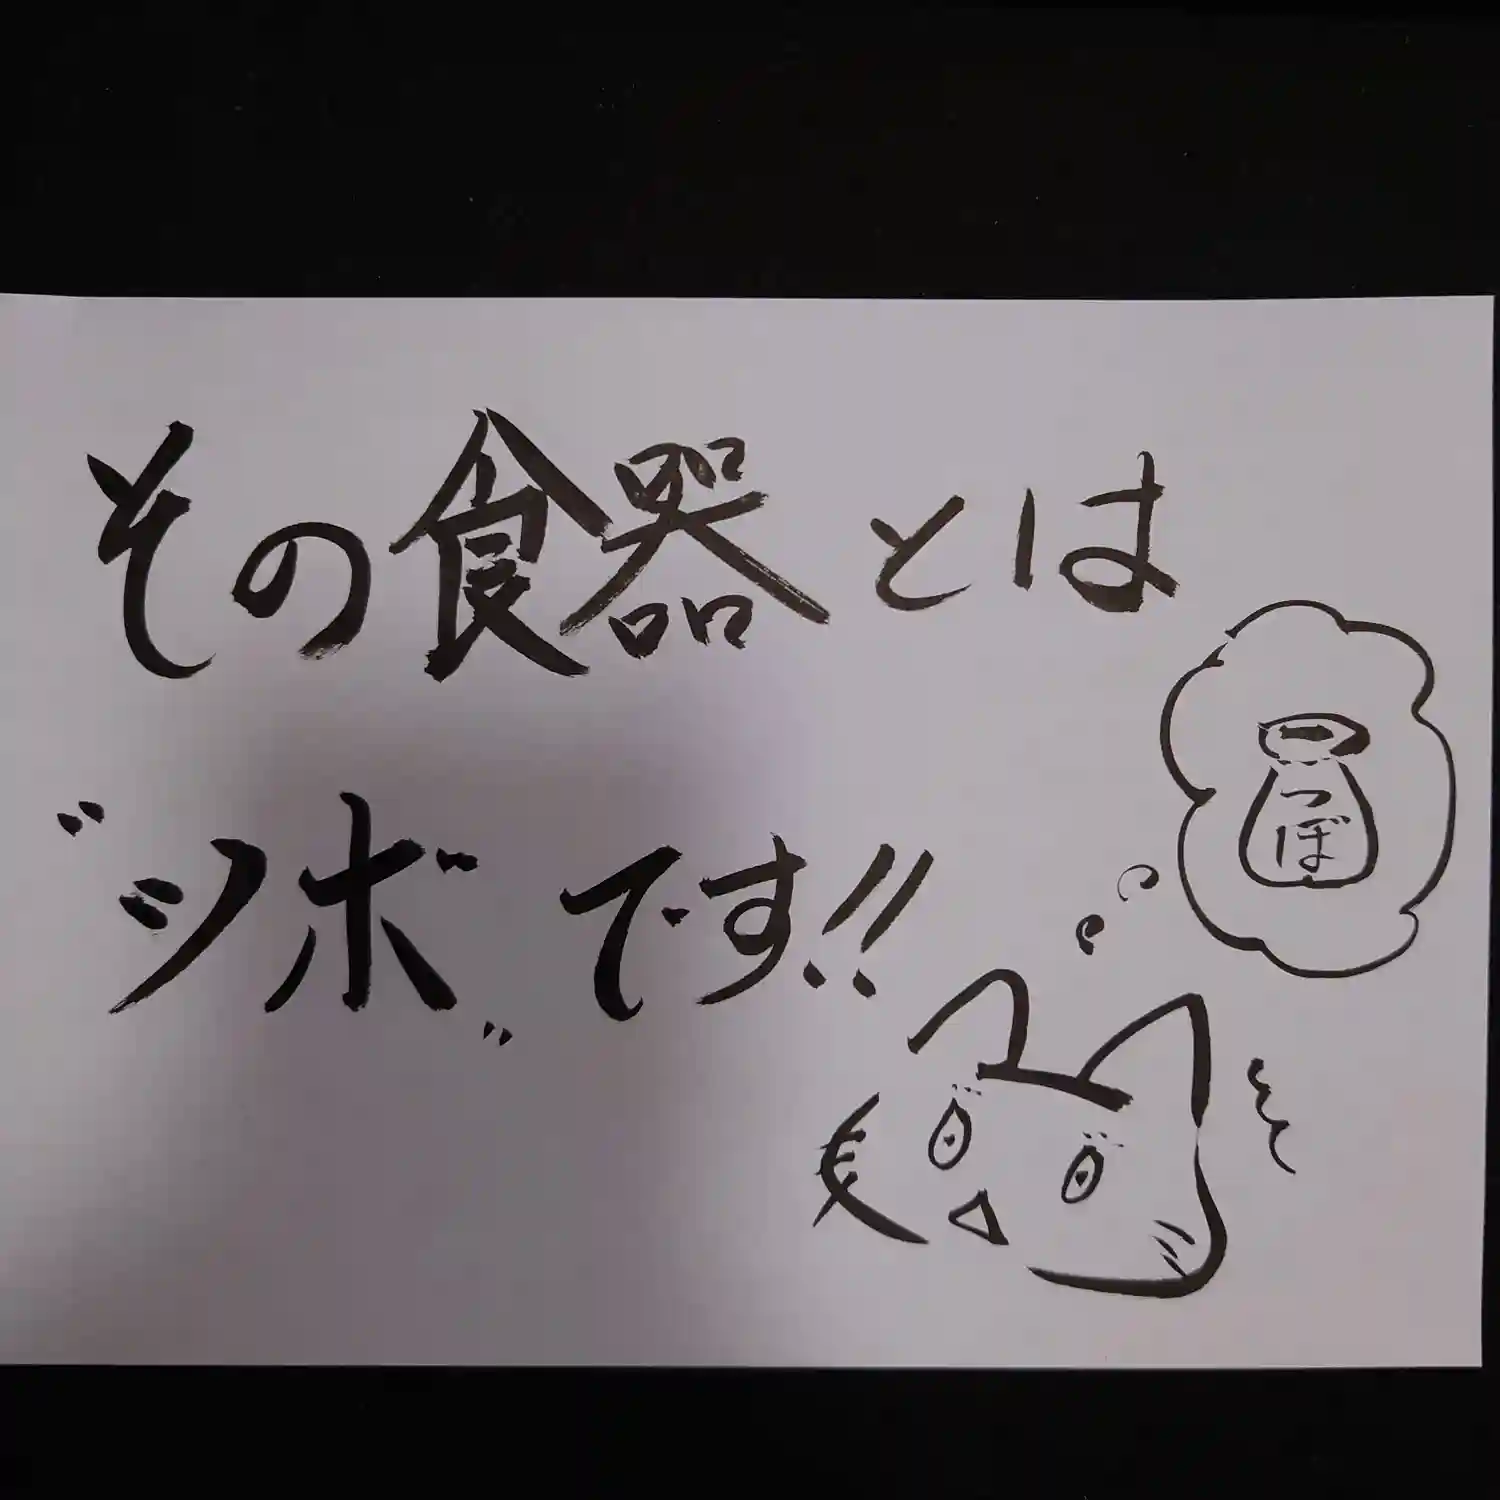 その食器とは
"シボ"です!!
つぼ